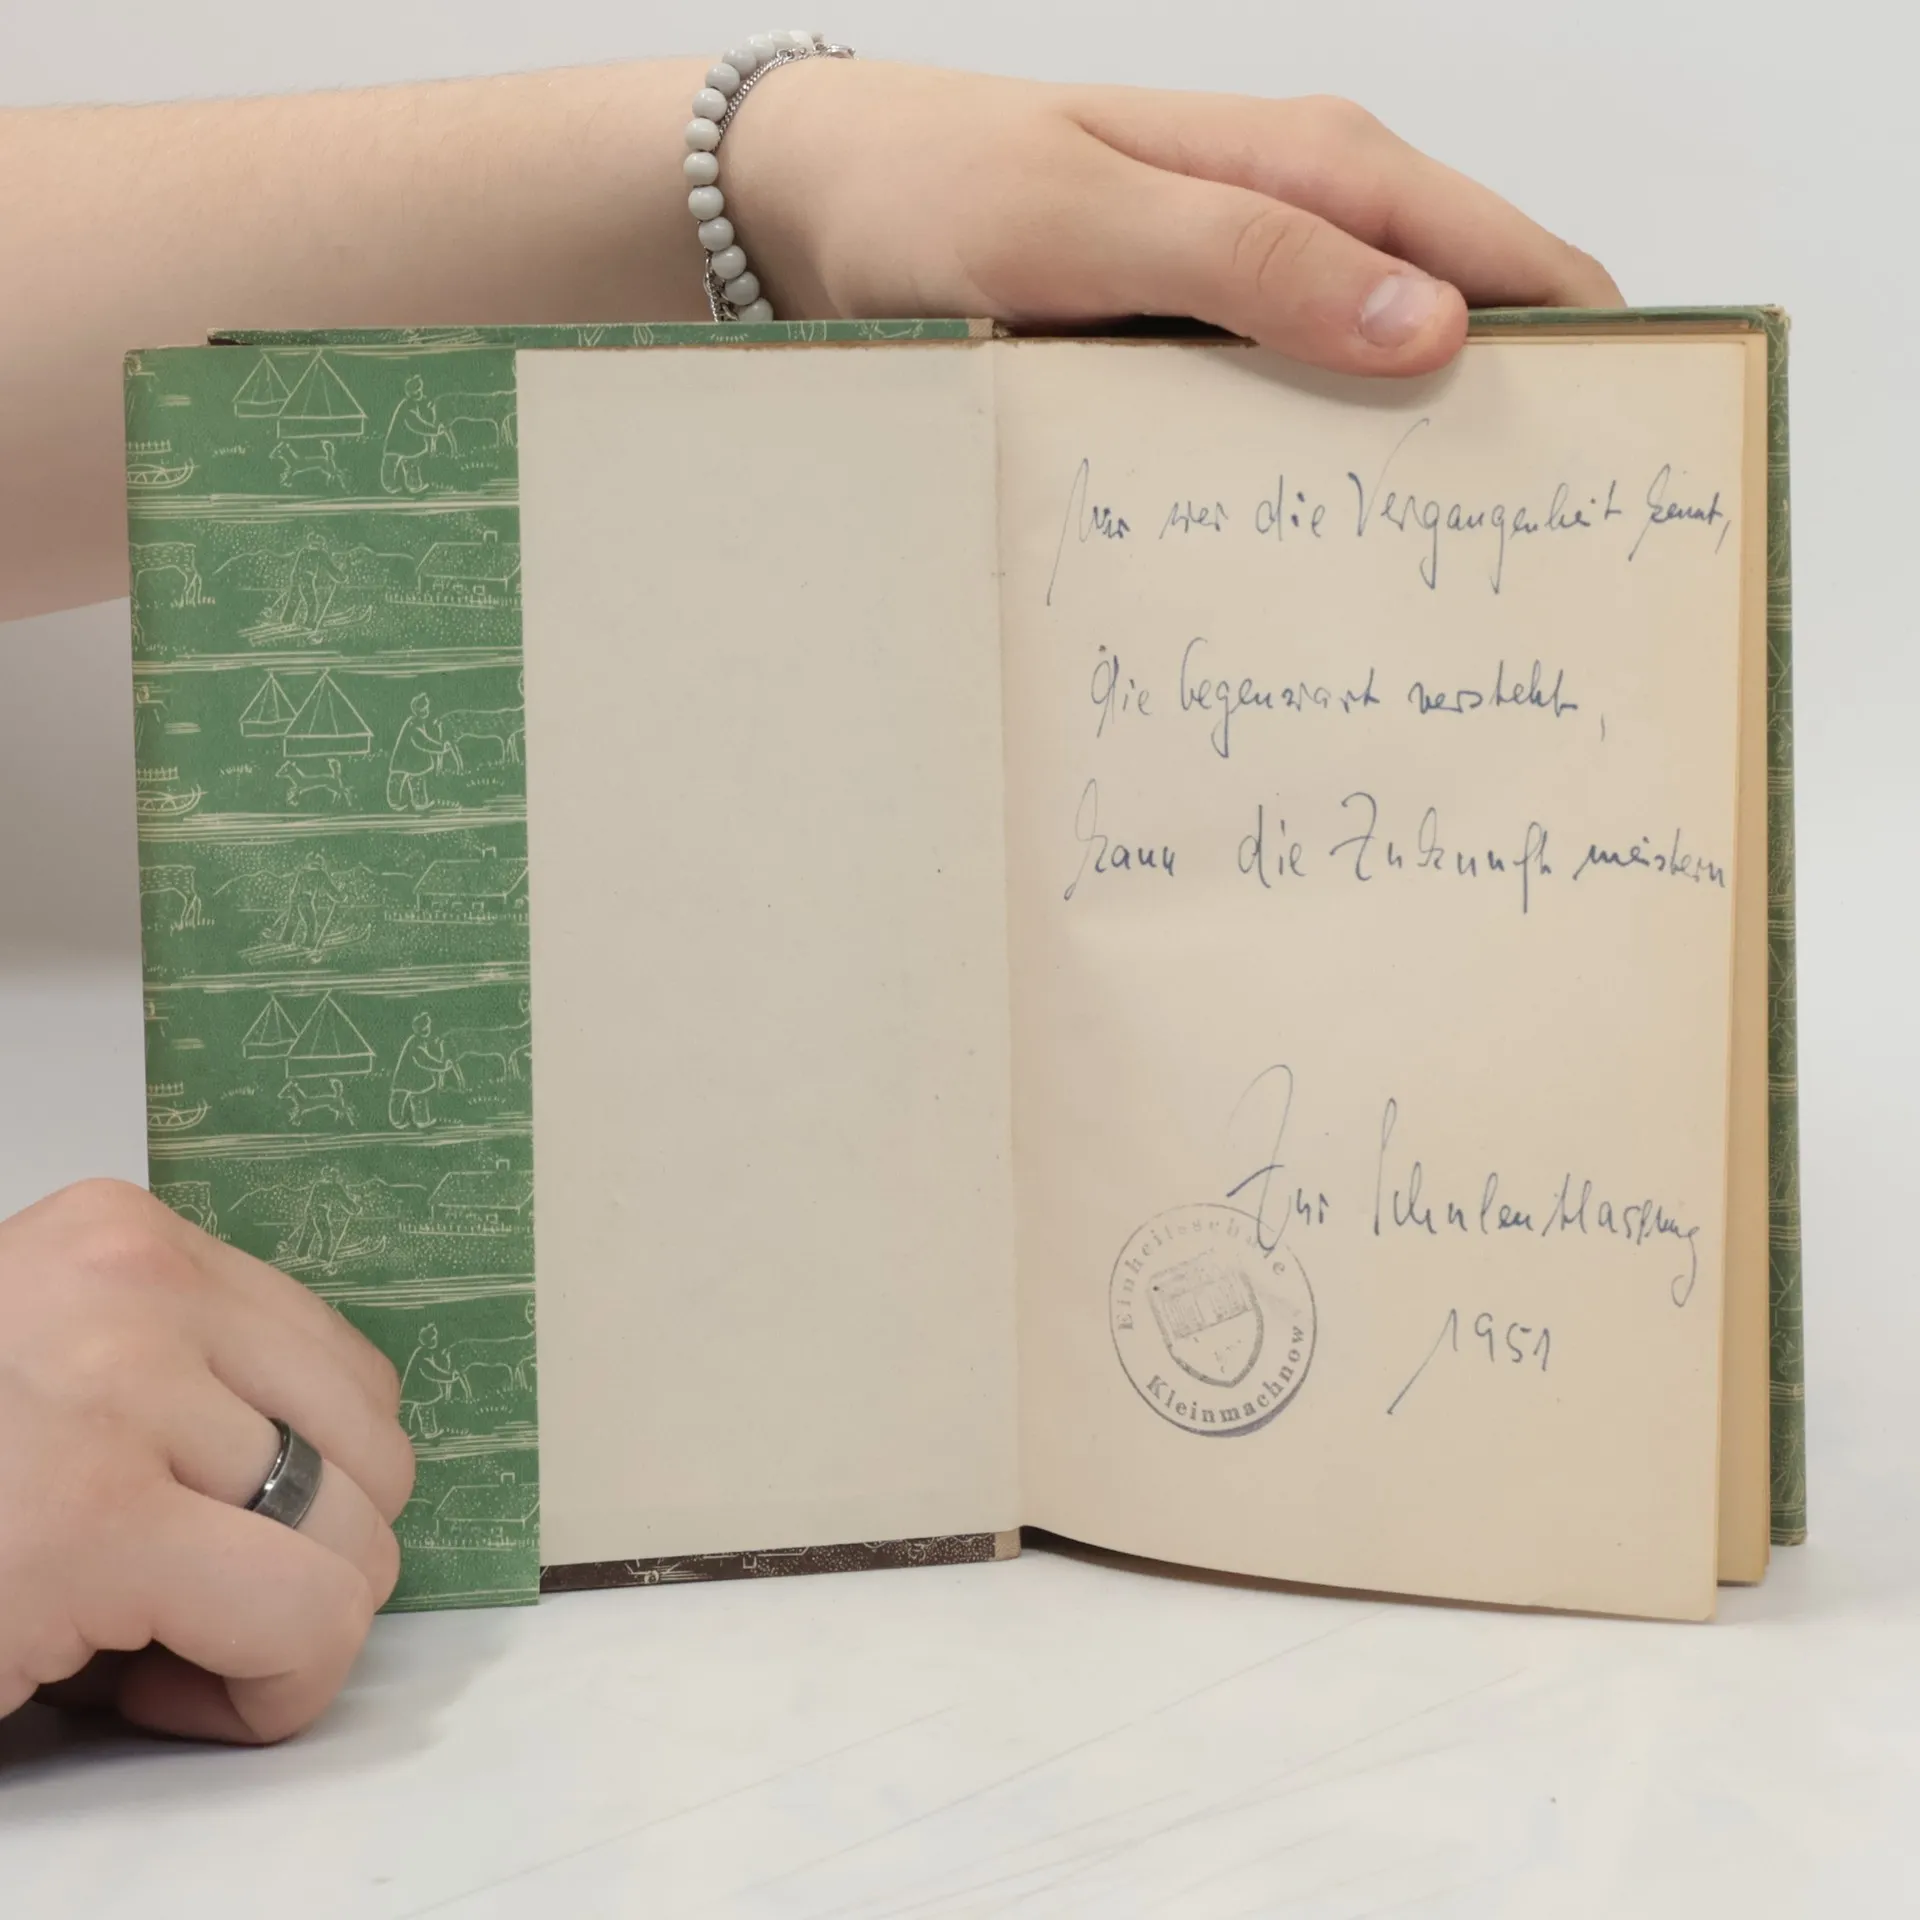 Nur wer die Vergangenheit kennt,
die Gegenwart versteht,
kann die Zukunft meistern
Zur Schulentlassung
1951
Einheitsschule
Kleinmachnow